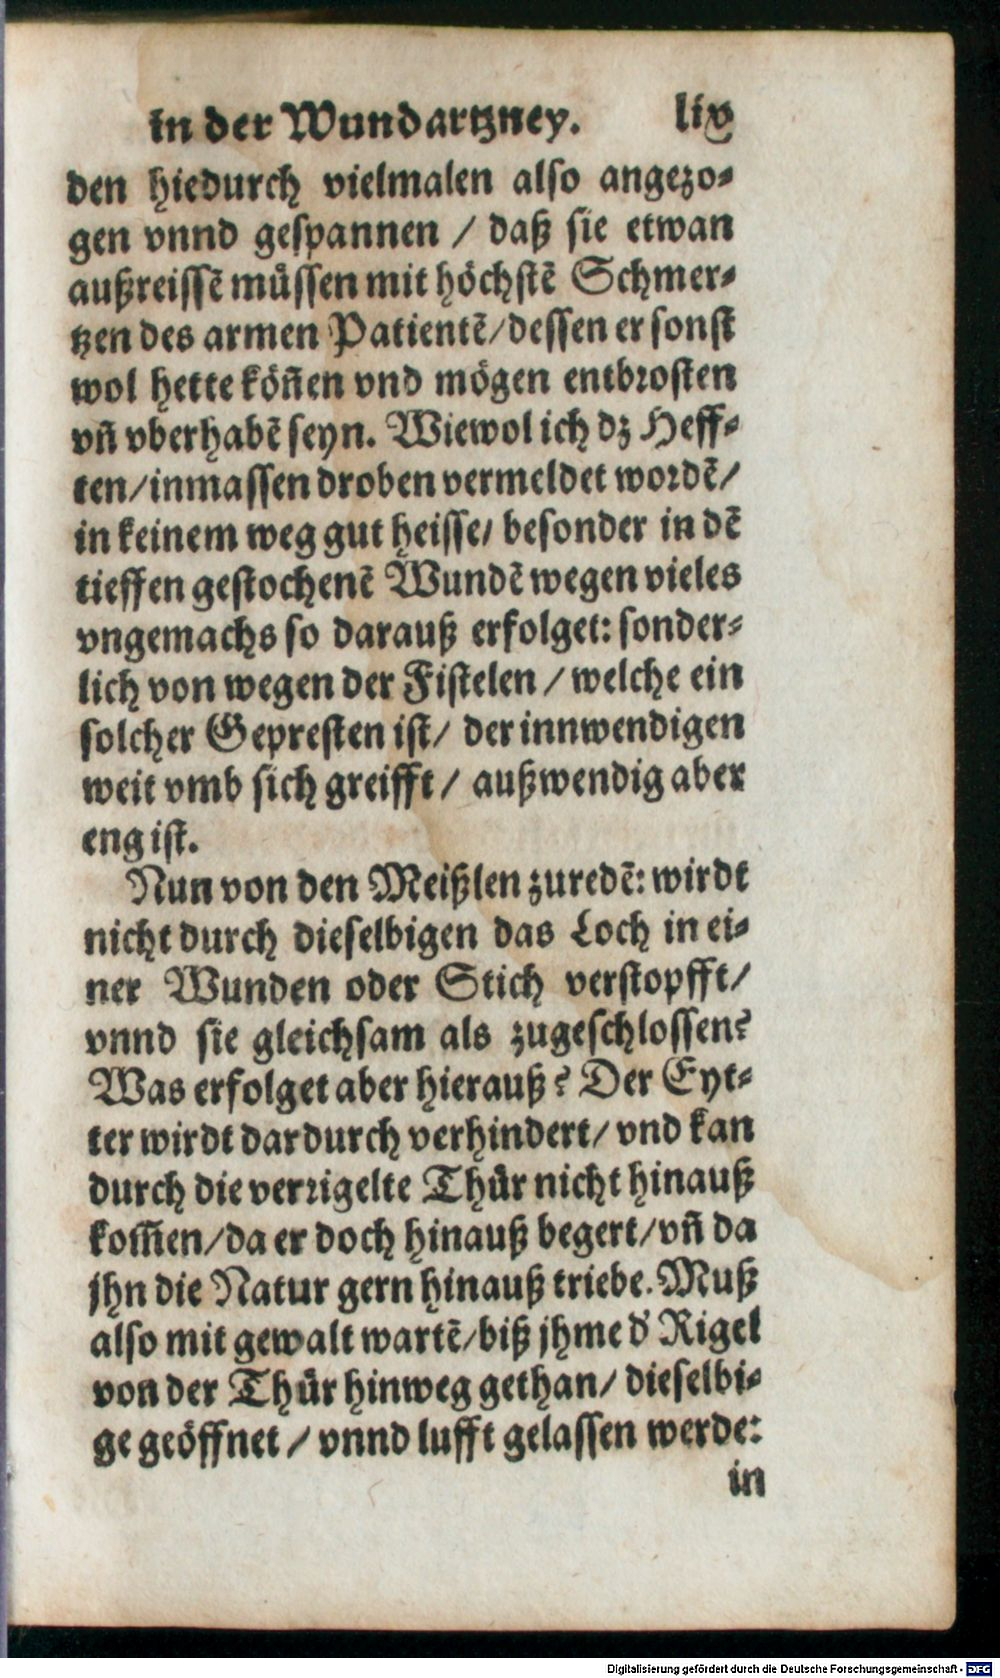 in der Wundartzney. lix
den hiedurch vielmalen also angezo⸗
gen vnnd gespannen / daß sie etwan
außreissē müssen mit höchstē Schmer⸗
tzen des armen Patientē/dessen er sonst
wol hette köñen vnd mögen entbrosten
vñ vberhabē seyn. Wiewol ich dz Heff⸗
ten/inmassen droben vermeldet wordē/
in keinem weg gut heisse/ besonder in dē
tieffen gestochenē Wundē wegen vieles
vngemachs so darauß erfolget: sonder⸗
lich von wegen der Fistelen / welche ein
solcher Gepresten ist/ der innwendigen
weit vmb sich greifft / außwendig aber
eng ist.
Nun von den Meißlen zuredē: wirdt
nicht durch dieselbigen das Loch in ei⸗
ner Wunden oder Stich verstopfft/
vnnd sie gleichsam als zugeschlossen?
Was erfolget aber hierauß? Der Eyt⸗
ter wirdt dardurch verhindert/ vnd kan
durch die verrigelte Thür nicht hinauß
kom̃en/da er doch hinauß begert/vñ da
jhn die Natur gern hinauß triebe. Muß
also mit gewalt wartē/biß jhme d' Rigel
von der Thür hinweg gethan/ dieselbi⸗
ge geöffnet / vnnd lufft gelassen werde:
in
Digitalisierung gefördert durch die Deutsche Forschungsgemeinschaft - DFG